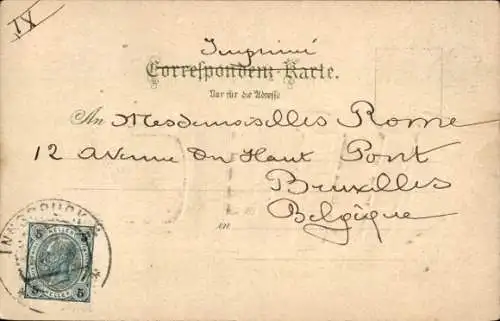 IX
Imprimé
Correspondenz-Karte.
Nur für die Adresse
An Mesdemoiselles Rome
12 Avenue du Haut Pont
Bruxelles
Belgique
in
INNSBRUCK
5 5
HELLER
5 5